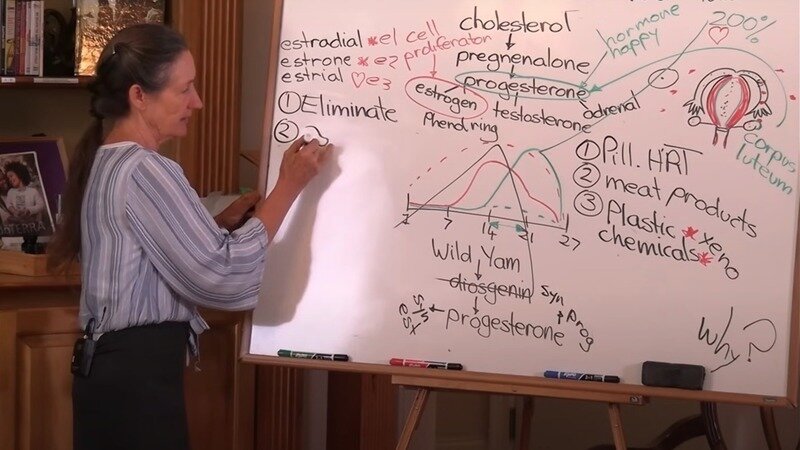 estradial *e1 cell
estrone *e2 proliferation
estrial ♡e3
① Eliminate
②
cholesterol
pregnenalone
progesterone
estrogen
testosterone
adrenal
Phenol ring
hormone
happy
200%
corpus
luteum
7
14
21
27
Wild Yam
diosgenin
syn
progesterone
Prog
① Pill. HRT
② meat products
③ Plastic *xeno
chemicals*
Why?
TERRA